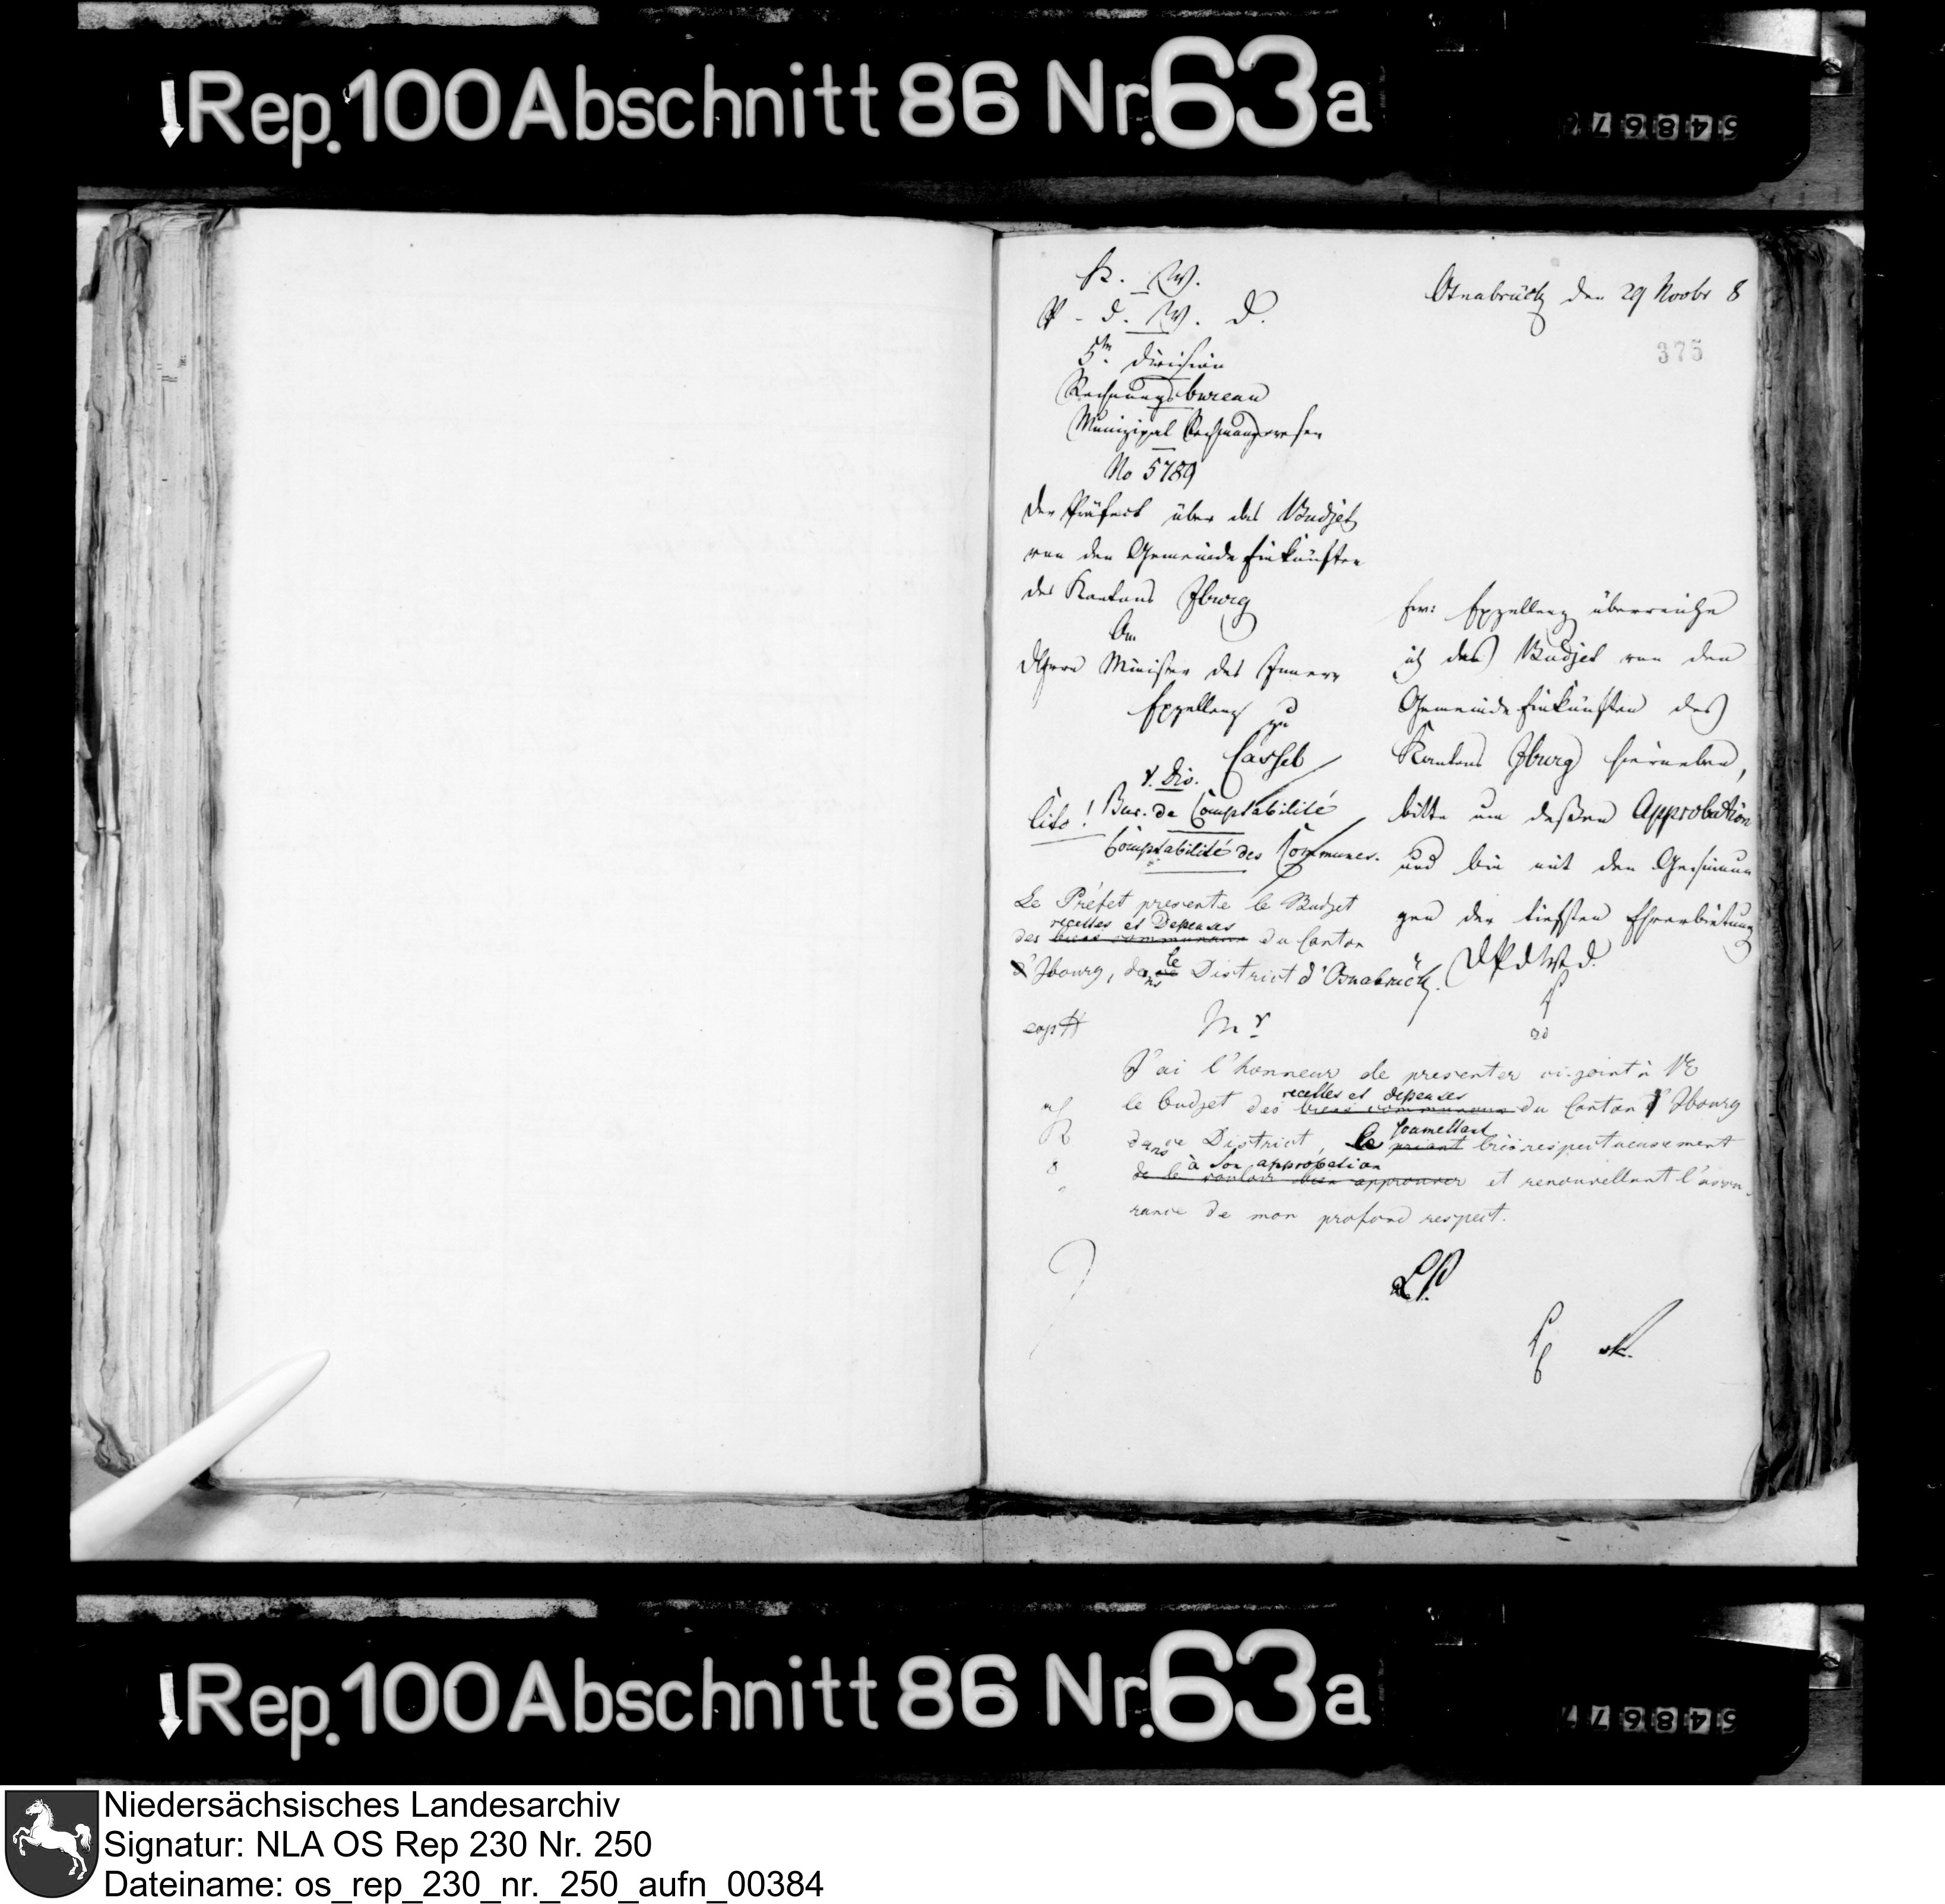 Rep. 100 Abschnitt 86 Nr. 63a
54867
K. W.
P. d. W. D.
5te Division
Rechnungsbureau
Munizipal Rechnungswesen
No 5789
Der Präfect über das Budjet
von den Gemeinde Einkünften
des Kantons Iburg
An
Herrn Minister des Innern
Exzellenz zu
Cassel
V. Div.
Cito! Bur. de Comptabilité
Comptabilité des Communes.
Le Préfet presente le Budget
recettes et Depenses
des biens communaux du Canton
le
d'Ibourg, dans District d'Osnabrück.
Osnabrück den 29 Novbr 8
375
Ew: Exzellenz überreiche
ich das Budjet von den
Gemeinde Einkünften des
Kantons Iburg hierneben,
bitte um deßen Approbation
und bin mit den Gesinnun
gen der tiefsten Ehrerbietung
D P d W D.
exp
Mr
J'ai l'honneur de presenter ci-joint à VE
recettes et depenses
le budget des biens communaux du Canton d'Ibourg
soumettant
dans ce District, le priant très respectueusement
à Son approbation
de le vouloir bien approuver et renouvellant l'assu-
rance de mon profond respect.
LP.
Rep. 100 Abschnitt 86 Nr. 63a
54867
Niedersächsisches Landesarchiv
Signatur: NLA OS Rep 230 Nr. 250
Dateiname: os_rep_230_nr._250_aufn_00384